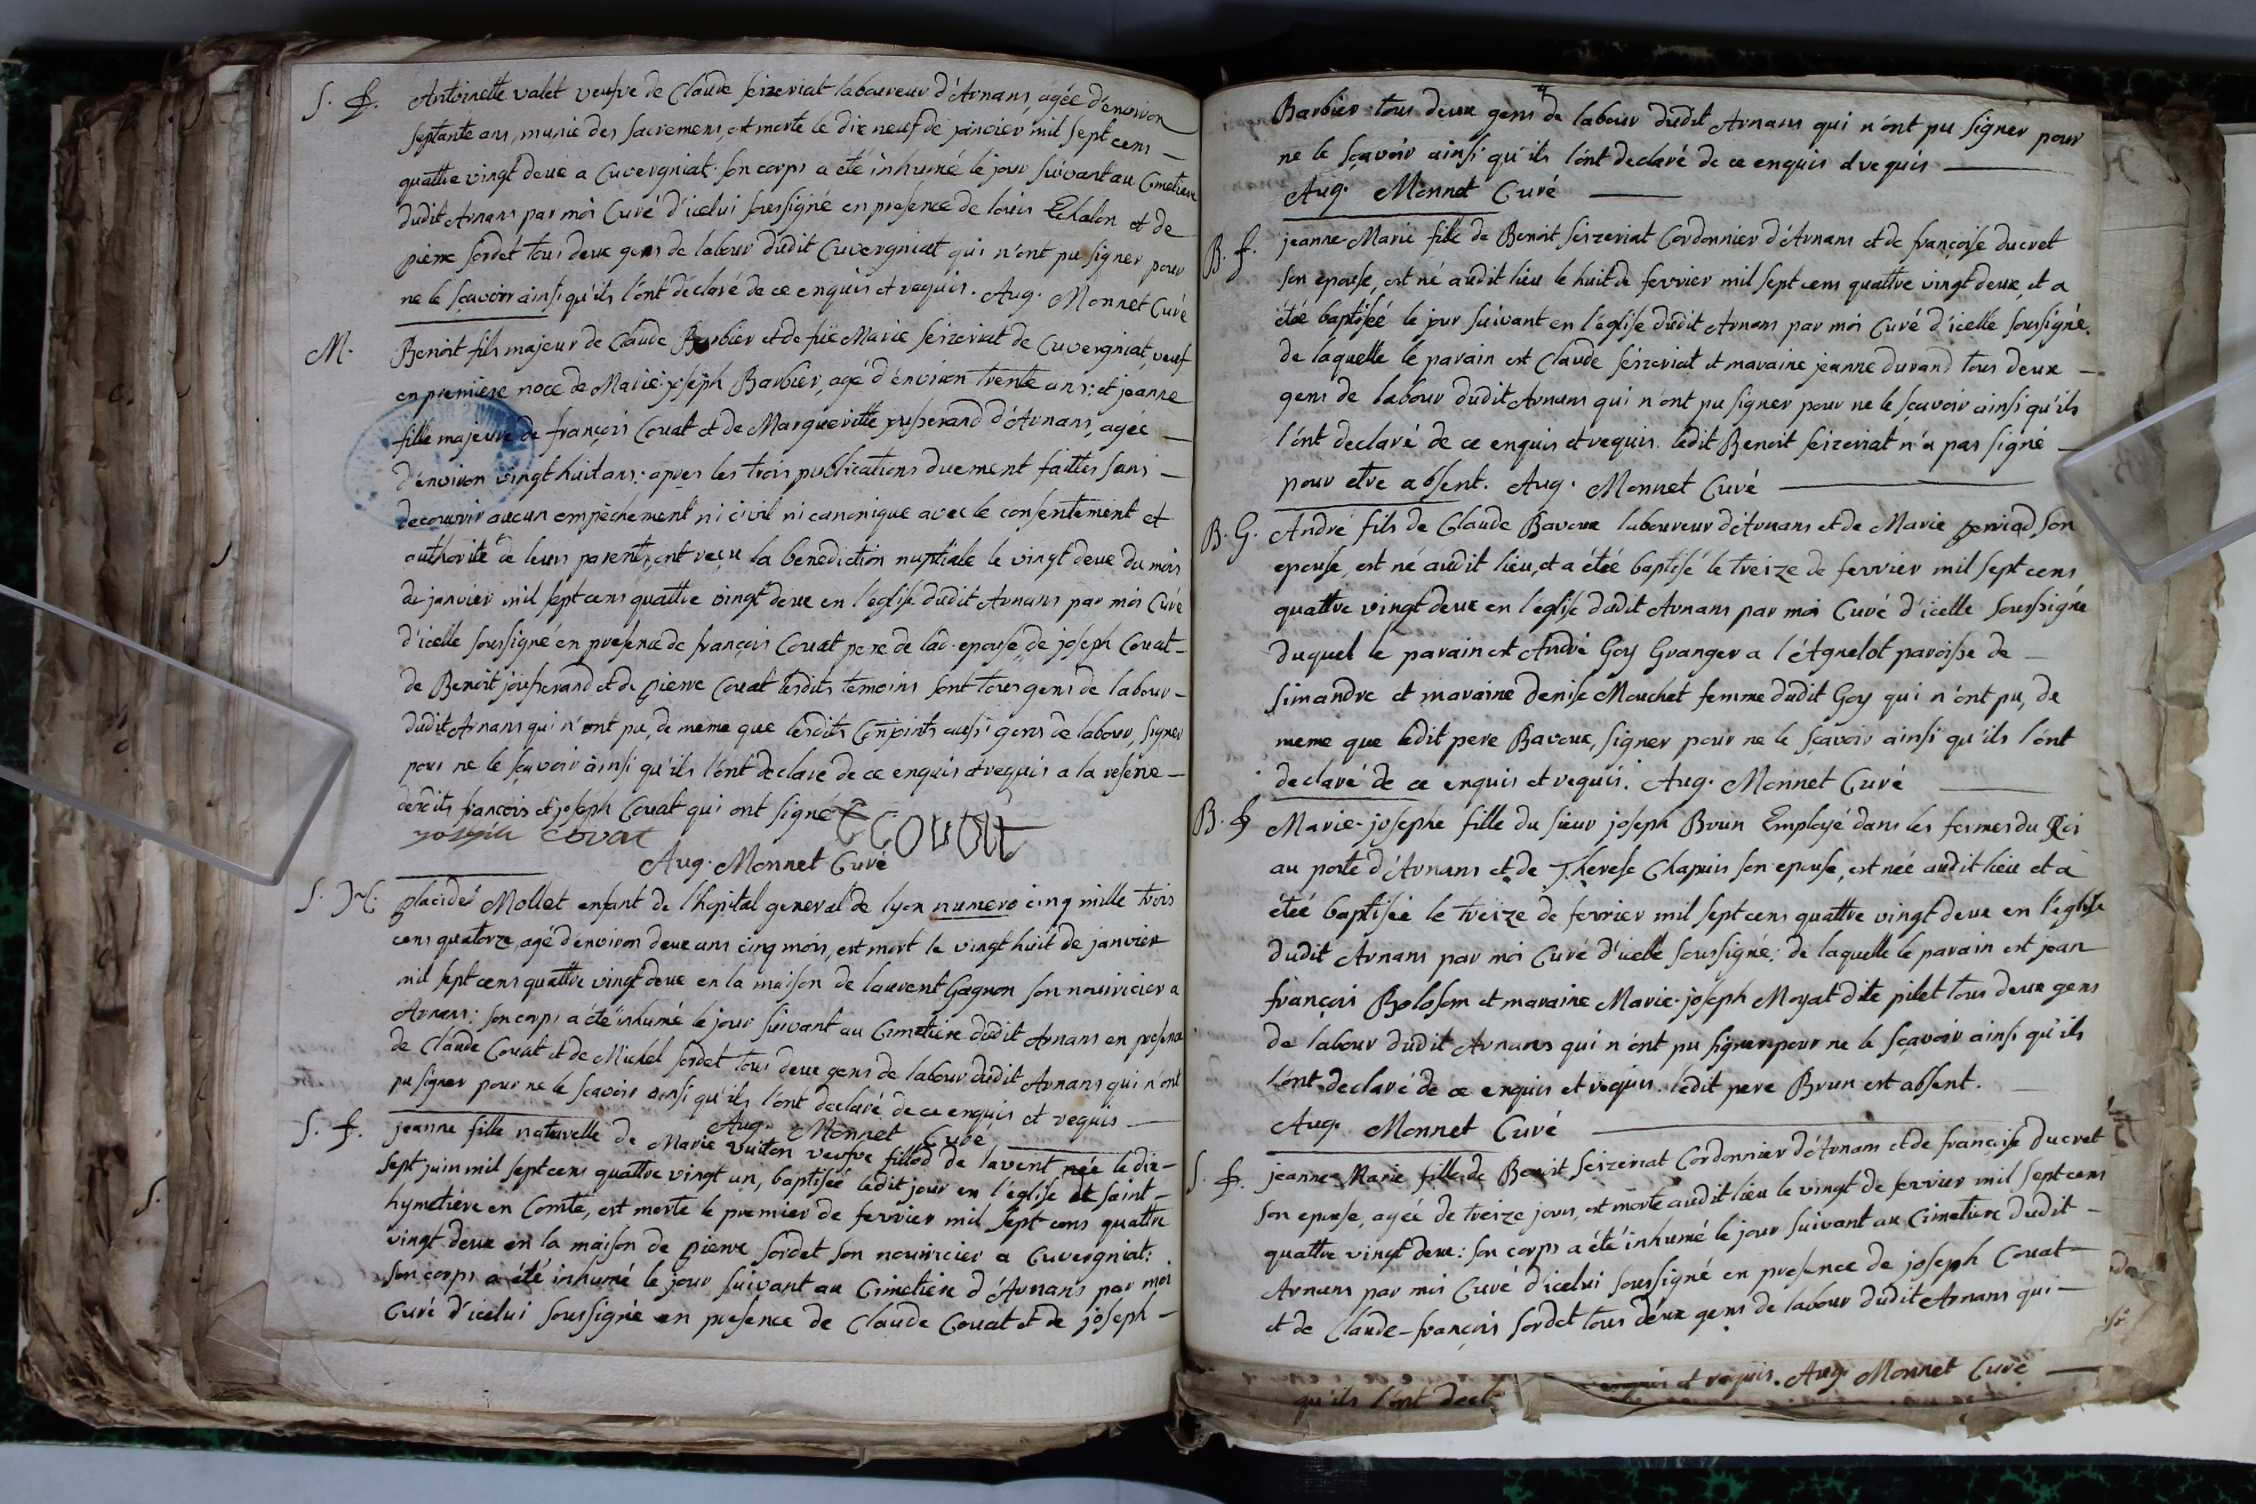 S. f. Antoinette valet veufve de Claude seizeriat laboureur d'Arnans, agée d'environ
septante ans, munie des sacremens, est morte le dix neuf de janvier mil sept cens
quattre vingt deux a Cuvergniat. son corps a été inhumé le jour suivant au Cimetiere
dudit Arnans par moi Curé d'icelui soussigné en presence de louis Echalon et de
pierre sordet tous deux gens de labour dudit Cuvergniat qui n'ont pu signer pour
ne le sçavoir ainsi qu'ils l'ont déclaré de ce enquis et requis. Aug. Monnet Curé
M. Benoit fils majeur de Claude Barbier et de füe Marie seizeriat de Cuvergniat, veuf
en premiere noce de Marie-joseph Barbier, agé d'environ trente ans: et jeanne
fille majeure de françois Couat et de Margueritte jousserand d'Arnans, agée
d'environ vingt huit ans: apres les trois publications duement faittes sans
decouvrir aucun empêchement ni civil ni canonique avec le consentement et
authorité de leurs parents, ont reçu la benediction nuptiale le vingt deux du mois
de janvier mil sept cens quattre vingt deux en l'eglise dudit Arnans par moi Curé
d'icelle soussigné en presence de françois Couat pere de lad. epouse, de joseph Couat
de Benoit jousserand et de pierre Couat lesdits temoins sont tous gens de labour
dudit Arnans qui n'ont pu, de meme que lesdits Conjoints aussi gens de labour, signer
pour ne le sçavoir ainsi qu'ils l'ont declaré de ce enquis et requis a la reserve
desdits françois et joseph Couat qui ont signé
joseph Covat f covat
Aug. Monnet Curé
S. placide Mollet enfant de l'hopital general de lyon numero cinq mille trois
cens quatorze, agé d'environ deux ans cinq mois, est mort le vingt huit de janvier
mil sept cens quattre vingt deux en la maison de laurent Gagnon son nourricier a
Arnans; son corps a été inhumé le jour suivant au Cimetiere dudit Arnans en presence
de Claude Couat et de Michel sordet tous deux gens de labour dudit Arnans qui n'ont
pu signer pour ne le sçavoir ainsi qu'ils l'ont declaré de ce enquis et requis
Aug. Monnet Curé
S. f. jeanne fille naturelle de Marie vuiton veufve fillod de lavent née le dix-
sept juin mil sept cens quattre vingt un, baptisée ledit jour en l'église de saint-
hymetiére en Comté, est morte le premier de fevrier mil sept cens quattre
vingt deux en la maison de pierre sordet son nourricier a Cuvergniat:
son corps a été inhumé le jour suivant au Cimetiere d'Arnans par moi
Curé d'icelui soussigné en presence de Claude Couat et de joseph
Barbier tous deux gens de labour dudit Arnans qui n'ont pu signer pour
ne le sçavoir ainsi qu'ils l'ont declaré de ce enquis et requis
Aug. Monnet Curé
B. f. jeanne-Marie fille de Benoit seizeriat Cordonnier d'Arnans et de françoise ducret
son epouse, est né audit lieu le huit de fevrier mil sept cens quattre vingt deux, et a
étée baptisée le jour suivant en l'église dudit Arnans par moi Curé d'icelle soussigné.
de laquelle le parain est Claude seizeriat et maraine jeanne durand tous deux
gens de labour dudit Arnans qui n'ont pu signer pour ne le sçavoir ainsi qu'ils
l'ont declaré de ce enquis et requis. ledit Benoit seizeriat n'a pas signé
pour etre absent. Aug. Monnet Curé
B. G. André fils de Claude Bavoux laboureur d'Arnans et de Marie perriod son
epouse, est né audit lieu, et a étée baptisé le treize de fevrier mil sept cens
quattre vingt deux en l'eglise dudit Arnans par moi Curé d'icelle soussigné
duquel le parain est André Goy Granger a l'Agnelot paroisse de
simandre et maraine denise Mouchet femme dudit Goy qui n'ont pu, de
meme que ledit pere Bavoux, signer pour ne le sçavoir ainsi qu'ils l'ont
declaré de ce enquis et requis. Aug. Monnet Curé
B. f Marie-josephe fille du sieur joseph Brun Employé dans les fermes du Roi
au poste d'Arnans et de Therese Chapuis son epouse, est née audit lieu et a
étée baptisée le treize de fevrier mil sept cens quattre vingt deux en l'eglise
dudit Arnans par moi Curé d'icelle soussigné: de laquelle le parain est jean
françois Bolosom et maraine Marie-joseph Moyat dite pilet tous deux gens
de labour dudit Arnans qui n'ont pu signer pour ne le sçavoir ainsi qu'ils
l'ont declaré de ce enquis et requis. ledit pere Brun est absent.
Aug. Monnet Curé
S. f. jeanne-Marie fille de Benoit seizeriat Cordonnier d'Arnans et de françoise ducret
son epouse, agée de treize jours, est morte audit lieu le vingt de fevrier mil sept cens
quattre vingt deux: son corps a été inhumé le jour suivant au Cimetiere dudit
Arnans par moi Curé d'icelui soussigné en presence de joseph Couat
et de Claude-françois sordet tous deux gens de labour dudit Arnans qui
qu'ils l'ont decl enquis et requis. Aug. Monnet Curé